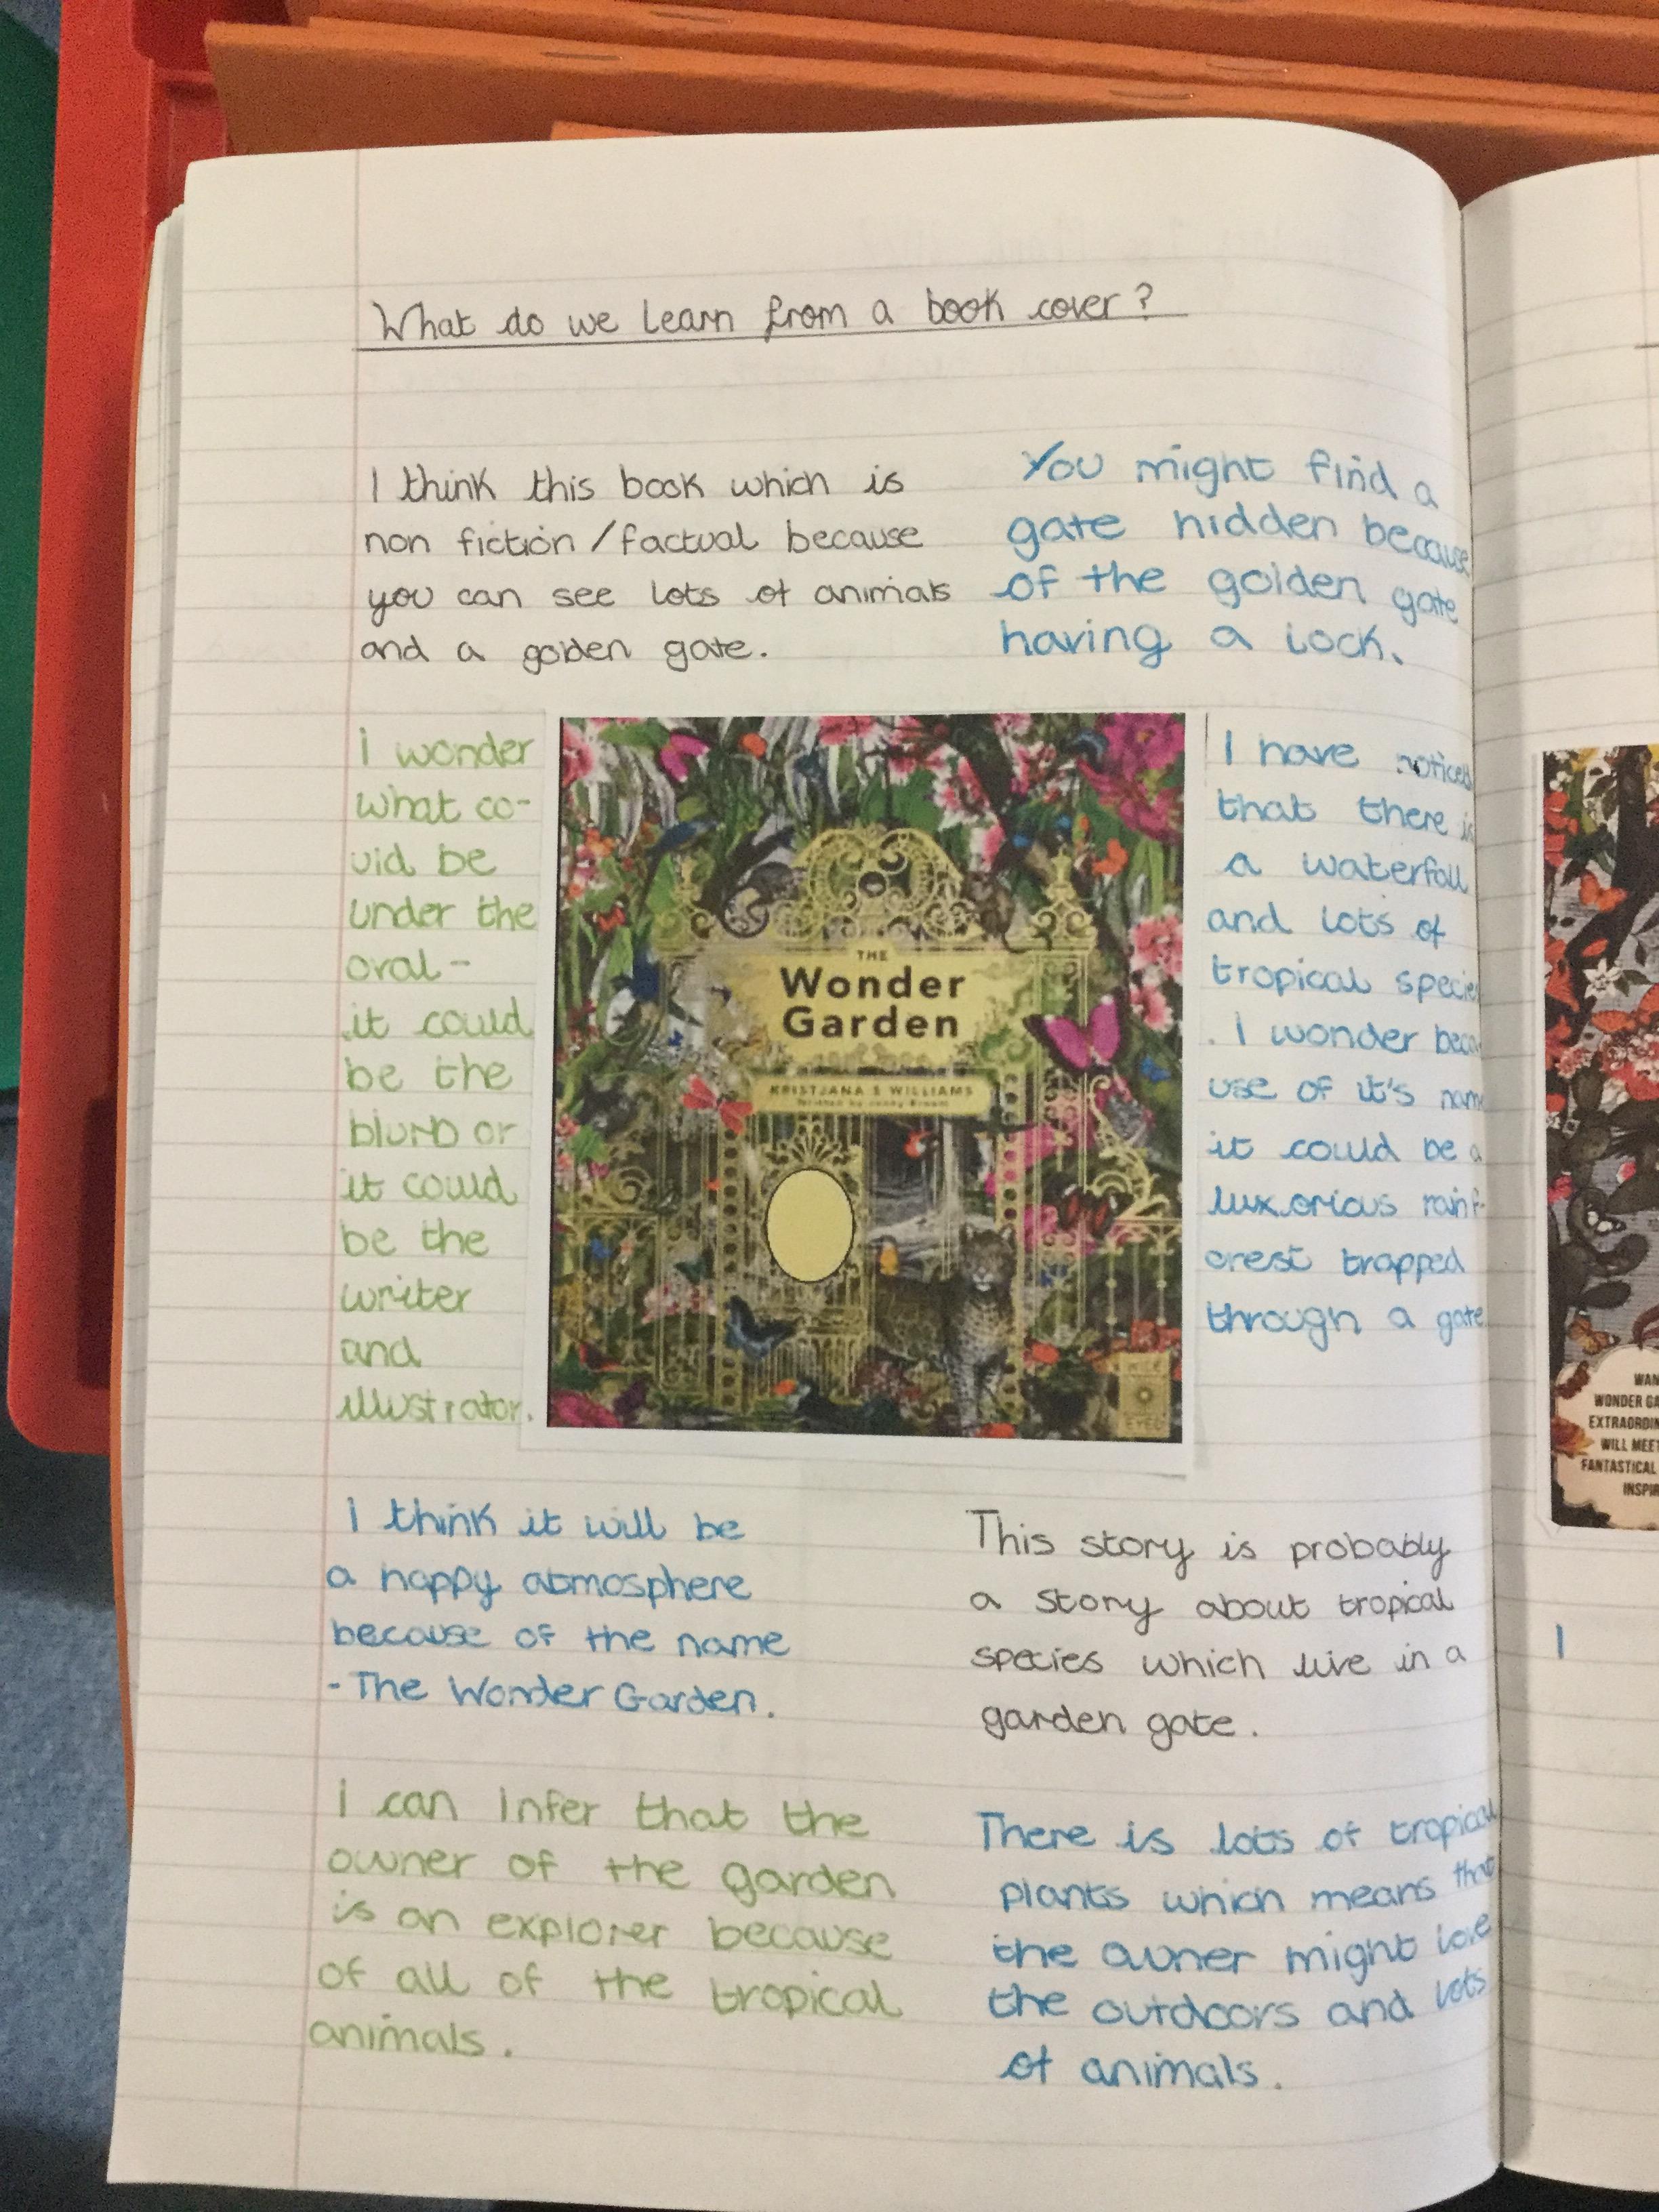 What do we learn from a book cover?
I think this book which is
non fiction/factual because
you can see lots of animals
and a golden gate.
You might find a
gate hidden because
of the golden gate
having a lock.
I wonder
what co-
uld be
under the
oval-
it could
be the
blurb or
it could
be the
writer
and
illustrator.
THE
Wonder
Garden
KRISTJANA S WILLIAMS
Written by Jenny Broom
WIDE
EYED
I have noticed
that there is
a waterfall
and lots of
tropical species
. I wonder beca
use of it's name
it could be a
luxorious rainf-
orest trapped
through a gate
I think it will be
a happy atmosphere
because of the name
- The Wonder Garden.
This story is probably
a story about tropical
species which live in a
garden gate.
I can infer that the
owner of the garden
is an explorer because
of all of the tropical
animals.
There is lots of tropical
plants which means that
the owner might love
the outdoors and lots
of animals.
WAN
WONDER GA
EXTRAORDIN
WILL MEET
FANTASTICAL
INSPIR
I